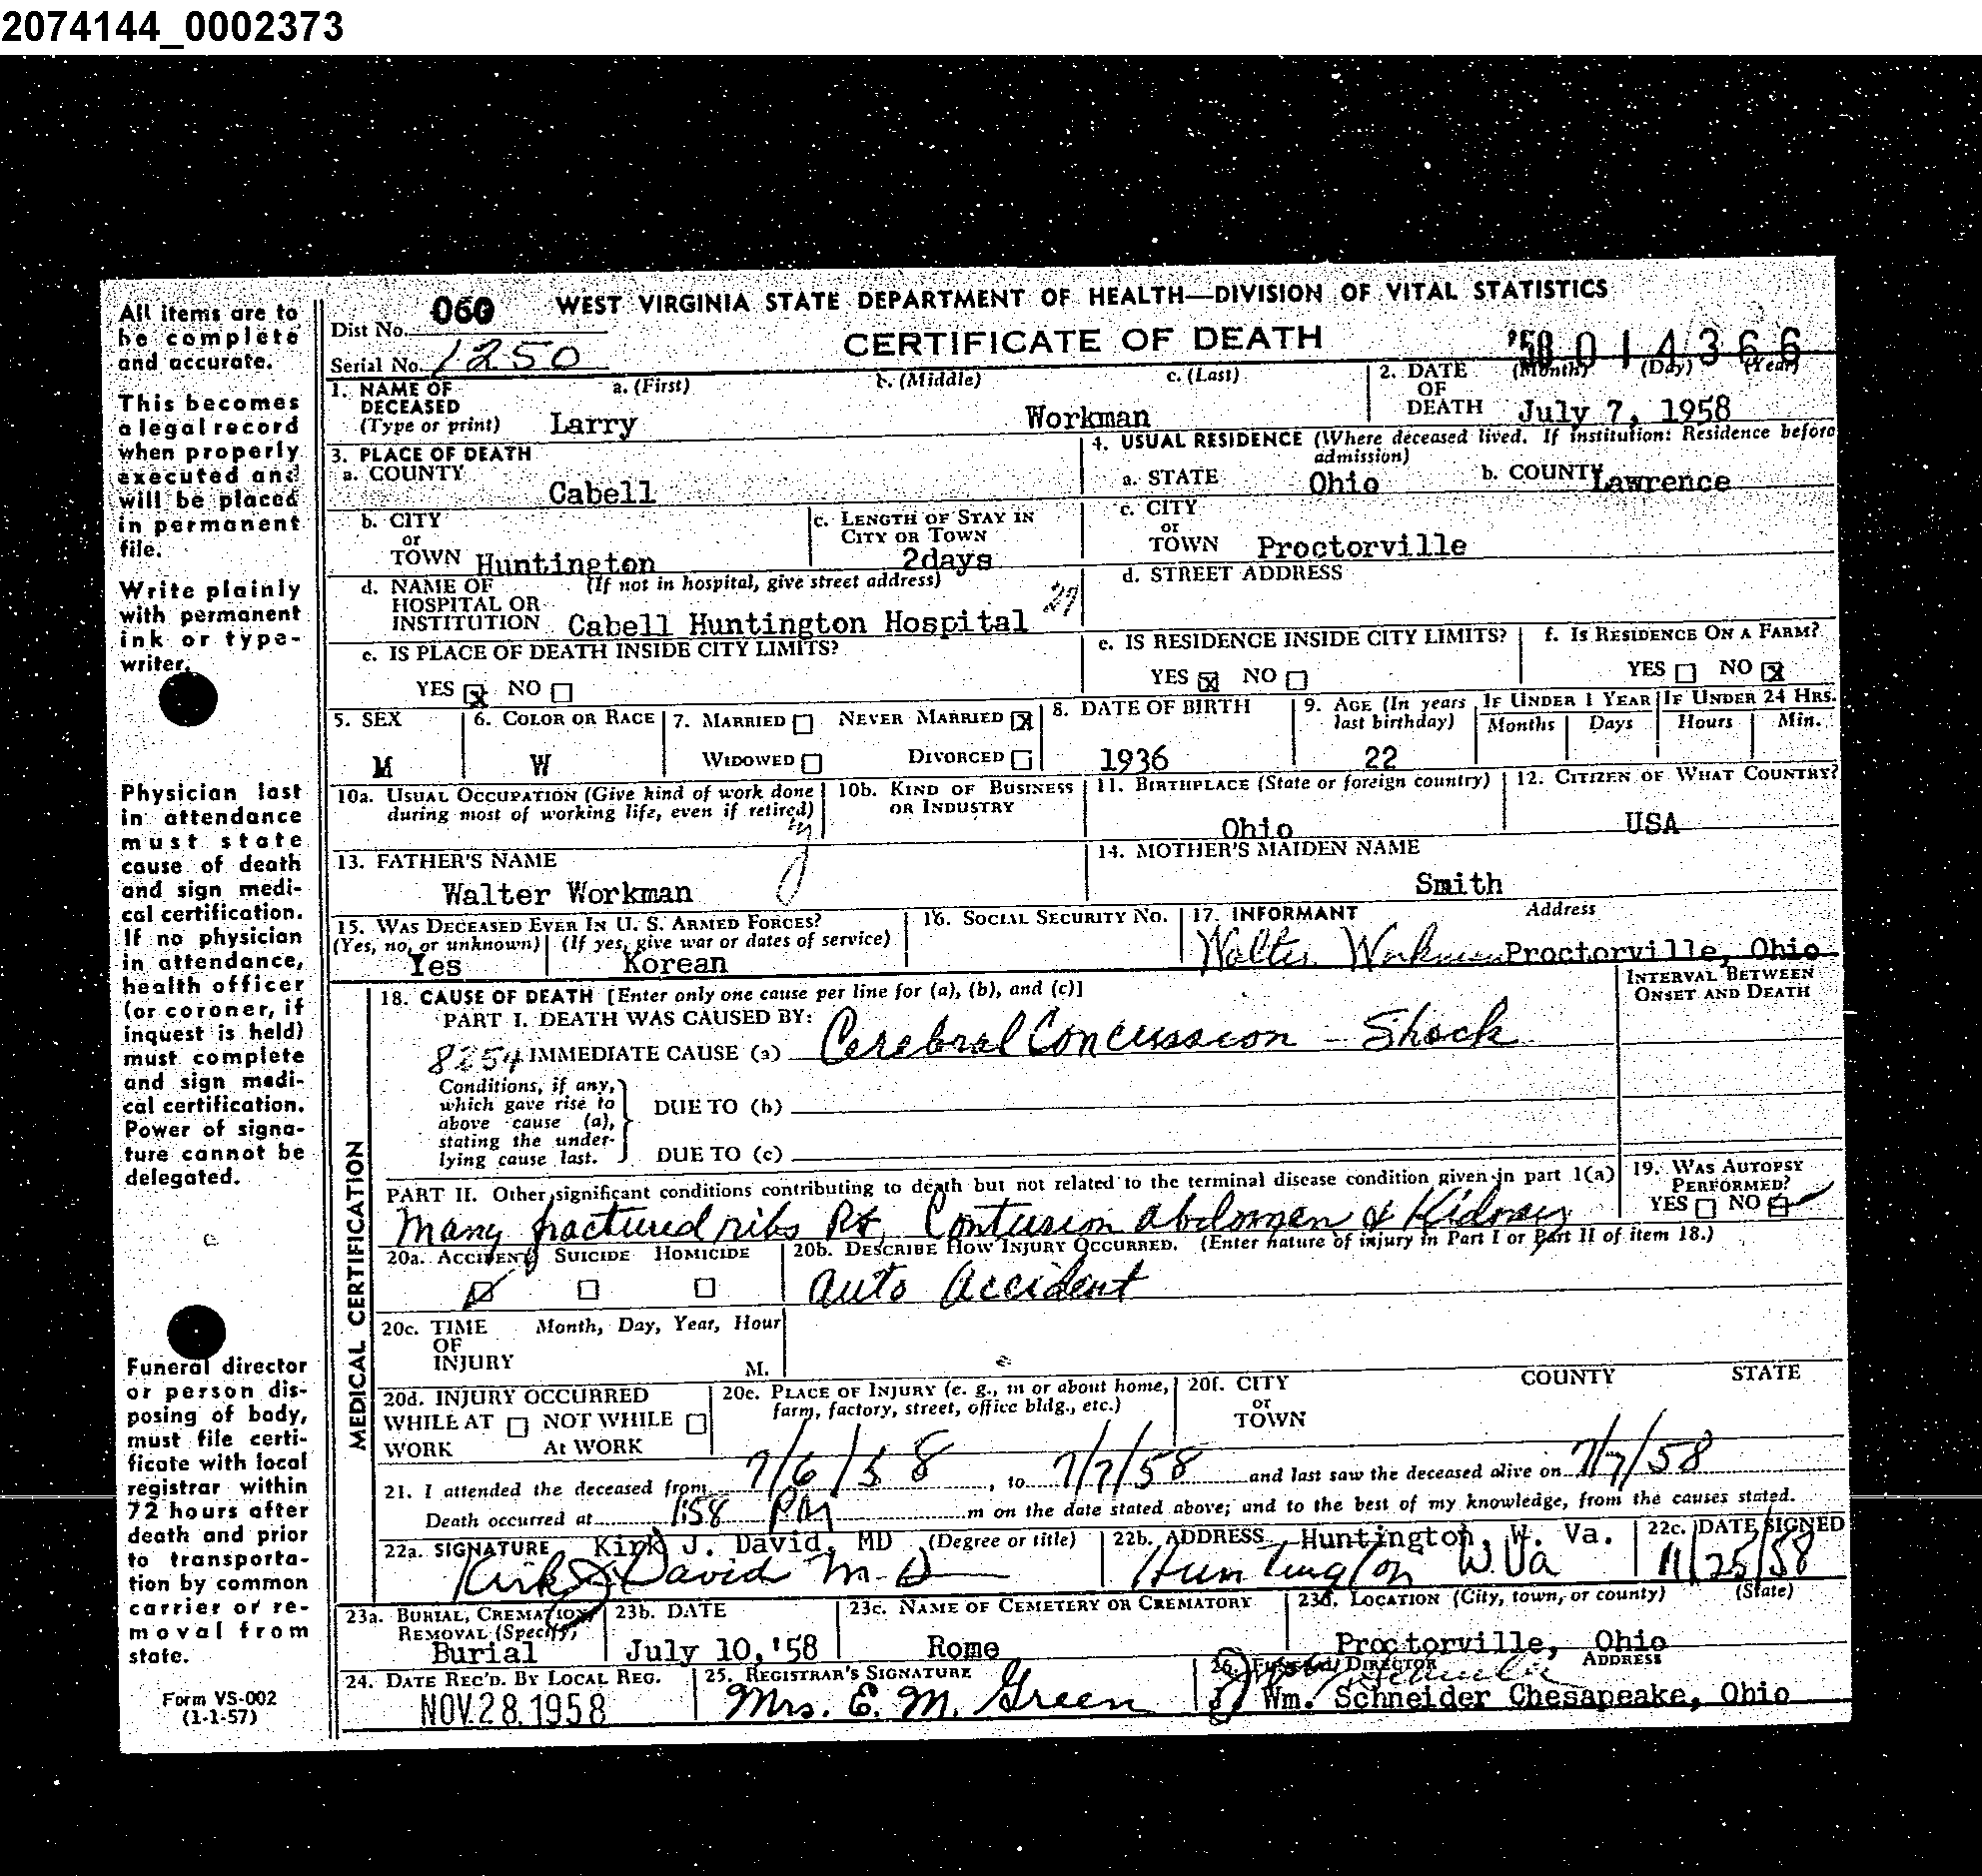 2074144_0002373
All items are to
be complete
and accurate.
This becomes
a legal record
when properly
executed and
will be placed
in permanent
file.
Write plainly
with permanent
ink or type-
writer.
Physician last
in attendance
must state
cause of death
and sign medi-
cal certification.
If no physician
in attendance,
health officer
(or coroner, if
inquest is held)
must complete
and sign medi-
cal certification.
Power of signa-
ture cannot be
delegated.
Funeral director
or person dis-
posing of body,
must file certi-
ficate with local
registrar within
72 hours after
death and prior
to transporta-
tion by common
carrier or re-
moval from
state.
Form VS-002
(1-1-57)
Dist No. 060 WEST VIRGINIA STATE DEPARTMENT OF HEALTH—DIVISION OF VITAL STATISTICS
Serial No. 1250 CERTIFICATE OF DEATH '58 014366
1. NAME OF DECEASED (Type or print) a. (First) b. (Middle) c. (Last)
Larry Workman
2. DATE OF DEATH (Month) (Day) (Year)
July 7, 1958
3. PLACE OF DEATH
a. COUNTY Cabell
4. USUAL RESIDENCE (Where deceased lived. If institution: Residence before admission)
a. STATE Ohio b. COUNTY Lawrence
b. CITY or TOWN Huntington
c. LENGTH OF STAY IN CITY OR TOWN 2days
c. CITY or TOWN Proctorville
d. NAME OF HOSPITAL OR INSTITUTION (If not in hospital, give street address)
Cabell Huntington Hospital
d. STREET ADDRESS
e. IS PLACE OF DEATH INSIDE CITY LIMITS?
YES X NO
e. IS RESIDENCE INSIDE CITY LIMITS?
YES X NO
f. IS RESIDENCE ON A FARM?
YES NO X
5. SEX M
6. COLOR OR RACE W
7. MARRIED NEVER MARRIED X
WIDOWED DIVORCED
8. DATE OF BIRTH 1936
9. AGE (In years last birthday) 22
IF UNDER 1 YEAR Months Days
IF UNDER 24 HRS. Hours Min.
10a. USUAL OCCUPATION (Give kind of work done during most of working life, even if retired)
10b. KIND OF BUSINESS OR INDUSTRY
11. BIRTHPLACE (State or foreign country) Ohio
12. CITIZEN OF WHAT COUNTRY? USA
13. FATHER'S NAME
Walter Workman
14. MOTHER'S MAIDEN NAME
Smith
15. WAS DECEASED EVER IN U. S. ARMED FORCES?
(Yes, no, or unknown) (If yes, give war or dates of service)
Yes Korean
16. SOCIAL SECURITY No.
17. INFORMANT Address
Walter Workman Proctorville, Ohio
MEDICAL CERTIFICATION
18. CAUSE OF DEATH [Enter only one cause per line for (a), (b), and (c)]
INTERVAL BETWEEN ONSET AND DEATH
PART I. DEATH WAS CAUSED BY:
8254 IMMEDIATE CAUSE (a) Cerebral Concussion - Shock
Conditions, if any, which gave rise to above cause (a), stating the under-lying cause last.
DUE TO (b)
DUE TO (c)
PART II. Other significant conditions contributing to death but not related to the terminal disease condition given in part 1(a)
Many fractured ribs Rt, Contusion abdomen & Kidney
19. WAS AUTOPSY PERFORMED?
YES NO
20a. ACCIDENT SUICIDE HOMICIDE
20b. DESCRIBE HOW INJURY OCCURRED. (Enter nature of injury in Part I or Part II of item 18.)
Auto Accident
20c. TIME OF INJURY Month, Day, Year, Hour M.
20d. INJURY OCCURRED
WHILE AT WORK NOT WHILE AT WORK
20e. PLACE OF INJURY (e. g., in or about home, farm, factory, street, office bldg., etc.)
20f. CITY or TOWN COUNTY STATE
21. I attended the deceased from 7/6/58, to 7/7/58 and last saw the deceased alive on 7/7/58
Death occurred at 1:58 PM m on the date stated above; and to the best of my knowledge, from the causes stated.
22a. SIGNATURE Kirk J. David, MD (Degree or title)
Kirk J David M.D
22b. ADDRESS Huntington, W. Va.
Huntington W.Va
22c. DATE SIGNED
11/25/58
23a. BURIAL, CREMATION, REMOVAL (Specify) Burial
23b. DATE July 10,'58
23c. NAME OF CEMETERY OR CREMATORY Rome
23d. LOCATION (City, town, or county) (State)
Proctorville, Ohio
24. DATE REC'D. BY LOCAL REG.
NOV.28.1958
25. REGISTRAR'S SIGNATURE
Mrs. E. M. Green
26. FUNERAL DIRECTOR ADDRESS
Wm. Schneider Chesapeake, Ohio